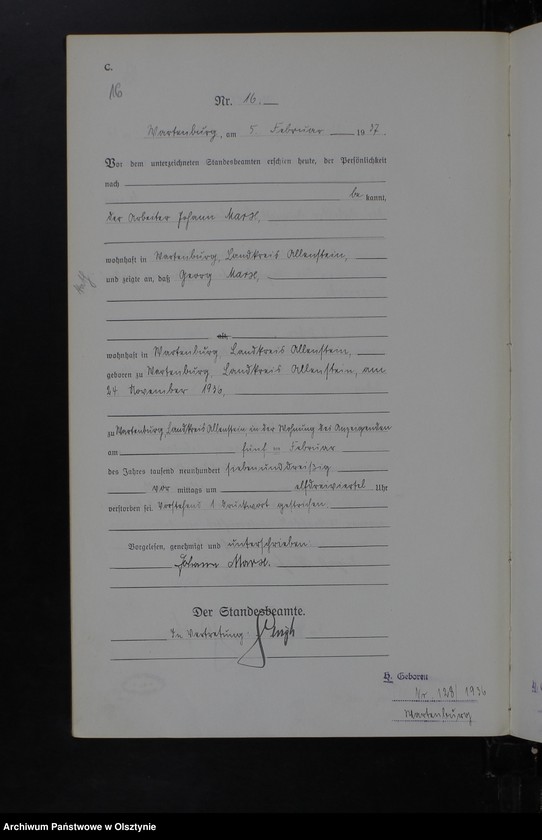 C.
16
Nr. 16.
Wartenburg, am 5 Februar 1937.
Vor dem unterzeichneten Standesbeamten erschien heute, der Persönlichkeit
nach
bekannt,
der Arbeiter Johann Marx,
wohnhaft in Wartenburg, Landkreis Allenstein,
und zeigte an, daß Georg Marx,
alt,
wohnhaft in Wartenburg, Landkreis Allenstein,
geboren zu Wartenburg, Landkreis Allenstein, am
24 November 1936,
zu Wartenburg, Landkreis Allenstein, in der Wohnung des Anzeigenden
am fünf n Februar
des Jahres tausend neunhundert siebenunddreißig
vor mittags um elfdreiviertel Uhr
verstorben sei. Vorstehend 1 Druckwort gestrichen.
Vorgelesen, genehmigt und unterschrieben.
Johann Marx.
Der Standesbeamte.
In Vertretung:
H. Geboren
Nr 128/1936
Wartenburg
Archiwum Państwowe w Olsztynie